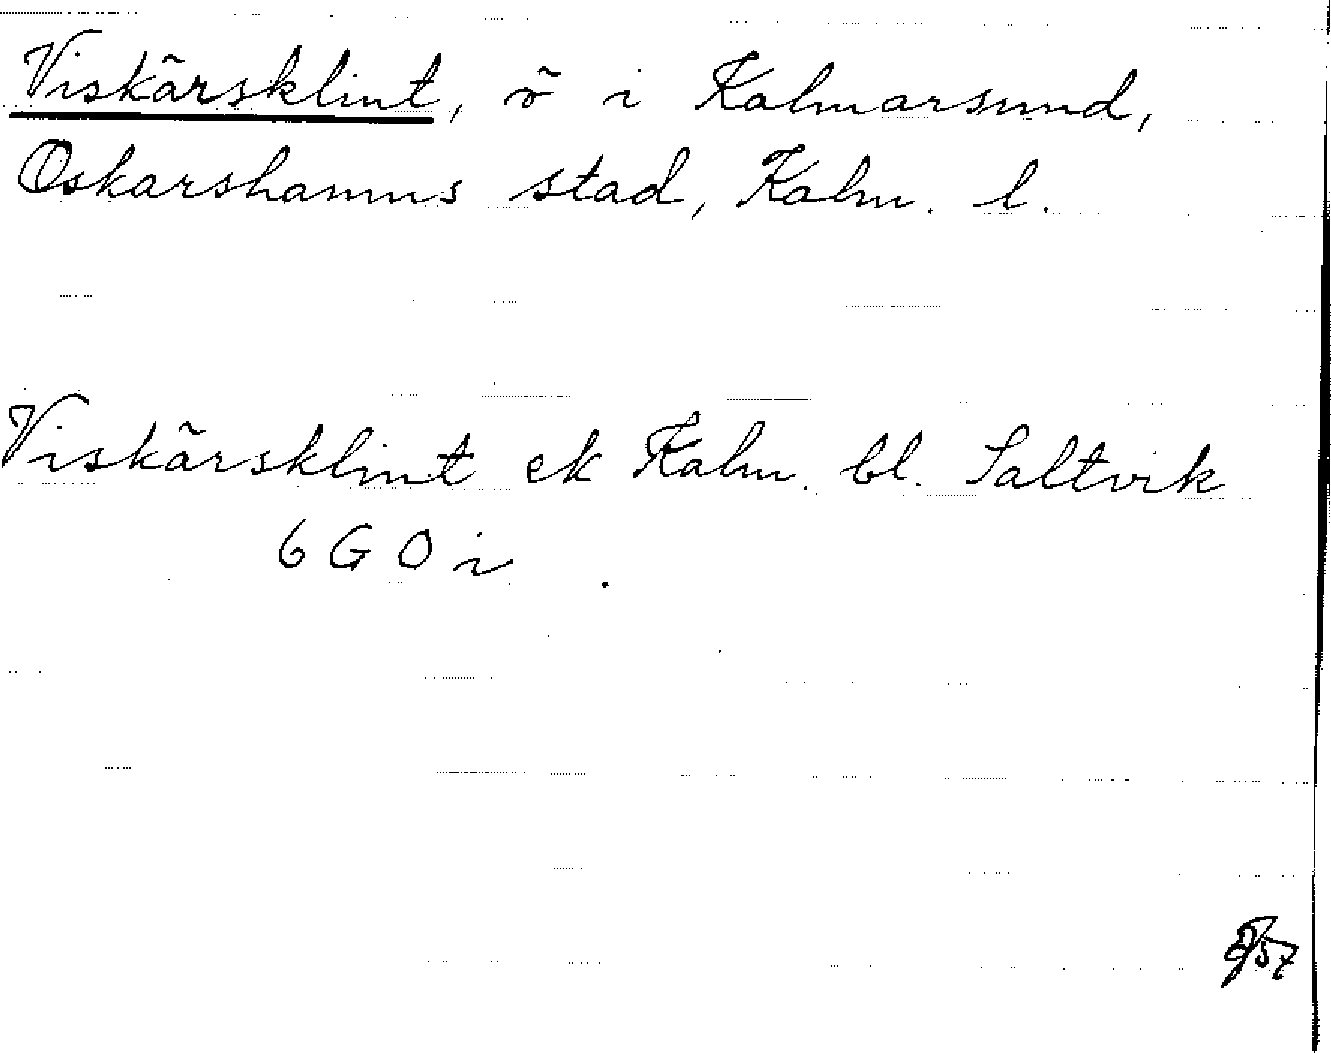 Viskärsklint, ö i Kalmarsund,
Oskarshamns stad, Kalm. l.
Viskärsklint ek Kalm. bl. Saltvik
6 G O i